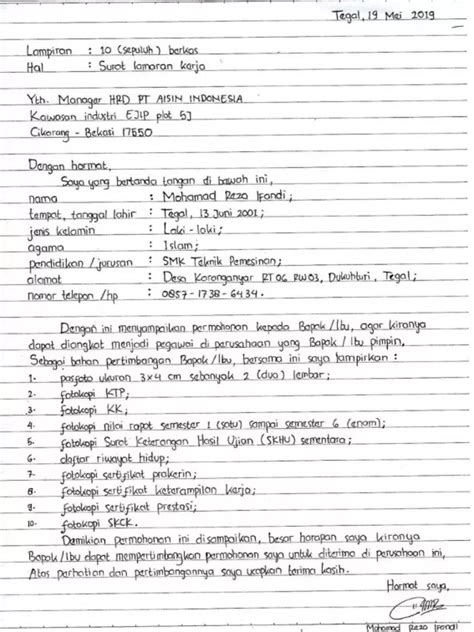 Tegal, 19 Mei 2019
Lampiran : 10 (sepuluh) berkas
Hal : Surat lamaran kerja
Yth. Manager HRD PT AISIN INDONESIA
Kawasan industri EJIP plot 5J
Cikarang - Bekasi 17550
Dengan hormat,
Saya yang bertanda tangan di bawah ini,
nama : Mohamad Reza Ifandi;
tempat, tanggal lahir : Tegal, 13 Juni 2001;
jenis kelamin : Laki - laki;
agama : Islam;
pendidikan / jurusan : SMK Teknik Pemesinan;
alamat : Desa Karanganyar RT 06 RW 03, Dukuhturi, Tegal;
nomor telepon /hp : 0857-1738-6434.
Dengan ini menyampaikan permohonan kepada Bapak / Ibu, agar kiranya
dapat diangkat menjadi pegawai di perusahaan yang Bapak / Ibu pimpin,
Sebagai bahan pertimbangan Bapak / Ibu, bersama ini saya lampirkan :
1. pasfoto ukuran 3x4 cm sebanyak 2 (dua) lembar;
2. fotokopi KTP;
3. fotokopi KK;
4. fotokopi nilai rapot semester 1 (satu) sampai semester 6 (enam);
5. fotokopi Surat Keterangan Hasil Ujian (SKHU) sementara;
6. daftar riwayat hidup;
7. fotokopi sertifikat prakerin;
8. fotokopi sertifikat keterampilan kerja;
9. fotokopi sertifikat prestasi;
10. fotokopi SKCK.
Demikian permohonan ini disampaikan, besar harapan saya kiranya
Bapak /Ibu dapat mempertimbangkan permohonan saya untuk diterima di perusahaan ini,
Atas perhatian dan pertimbangannya saya ucapkan terima kasih.
Hormat saya,
Mohamad Reza Ifandi